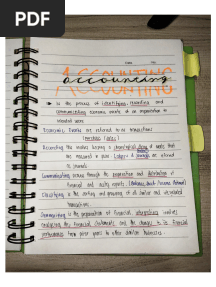 PDF
ACCOUNTING
accounting
Is the process of identifying, recording and
communicating economic events of an organization to
interested users.
Economic Events are referred to as transactions
Recording this involves keeping a chronological diary of events that
are measured in pesos. Ledgers & journals are referred
to journals
Communicating occurs through the preparation and distribution of
financial and reports.
Classifying is the sorting and grouping of all similar and interrelated
transactions
Summarizing is the preparation of financial statements
analyzing the financial statements and the changes in financial
performance from prior years to other similar businesses.